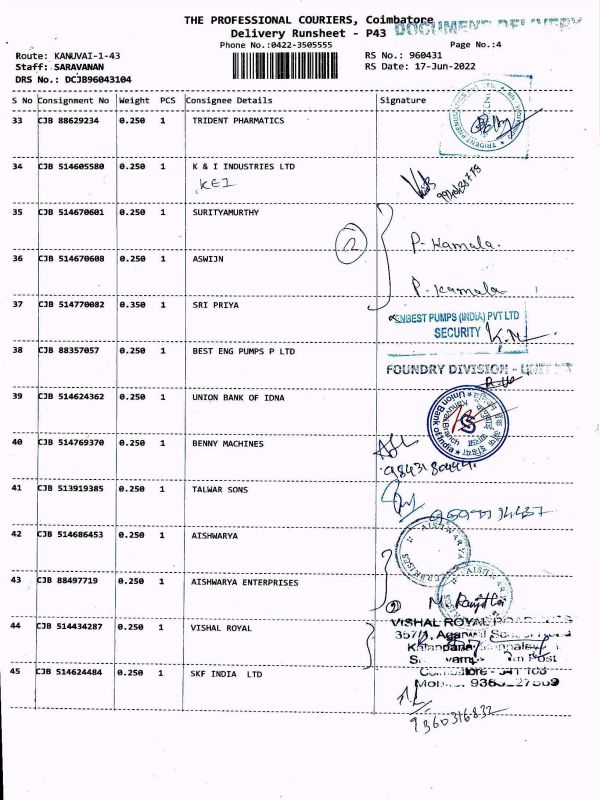 THE PROFESSIONAL COURIERS, Coimbatore
DOCUMENT DELIVERY
Delivery Runsheet - P43
Phone No.:0422-3505555
Page No.:4
Route: KANUVAI-1-43
RS No.: 960431
Staff: SARAVANAN
RS Date: 17-Jun-2022
DRS No.: DCJB96043104
S No Consignment No Weight PCS Consignee Details Signature
33 CJB 88629234 0.250 1 TRIDENT PHARMATICS
34 CJB 514605580 0.250 1 K & I INDUSTRIES LTD
KEI
35 CJB 514670601 0.250 1 SURITYAMURTHY
2 P. Kamala.
36 CJB 514670608 0.250 1 ASWIJN
P. Kamala
37 CJB 514770082 0.350 1 SRI PRIYA
BEST PUMPS (INDIA) PVT LTD
SECURITY K.M
38 CJB 88357057 0.250 1 BEST ENG PUMPS P LTD
FOUNDRY DIVISION - UNIT
39 CJB 514624362 0.250 1 UNION BANK OF IDNA
Union Bank of India
Kanuvai Branch
40 CJB 514769370 0.250 1 BENNY MACHINES
41 CJB 513919385 0.250 1 TALWAR SONS
42 CJB 514686453 0.250 1 AISHWARYA
AISHWARYA
43 CJB 88497719 0.250 1 AISHWARYA ENTERPRISES
AISHWARYA
2 M.
44 CJB 514434287 0.250 1 VISHAL ROYAL
VISHAL ROYAL
357/1, Agarwal
Post
45 CJB 514624484 0.250 1 SKF INDIA LTD
9360316832